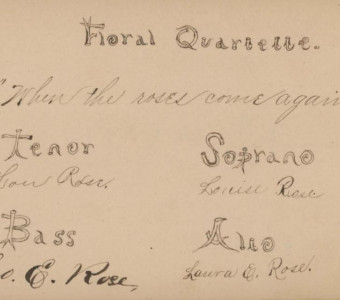 Floral Quartette.
"When the roses come again
Tenor Soprano
Rose. Louise Rose
Bass Alto
o. E. Rose, Laura E. Rose.